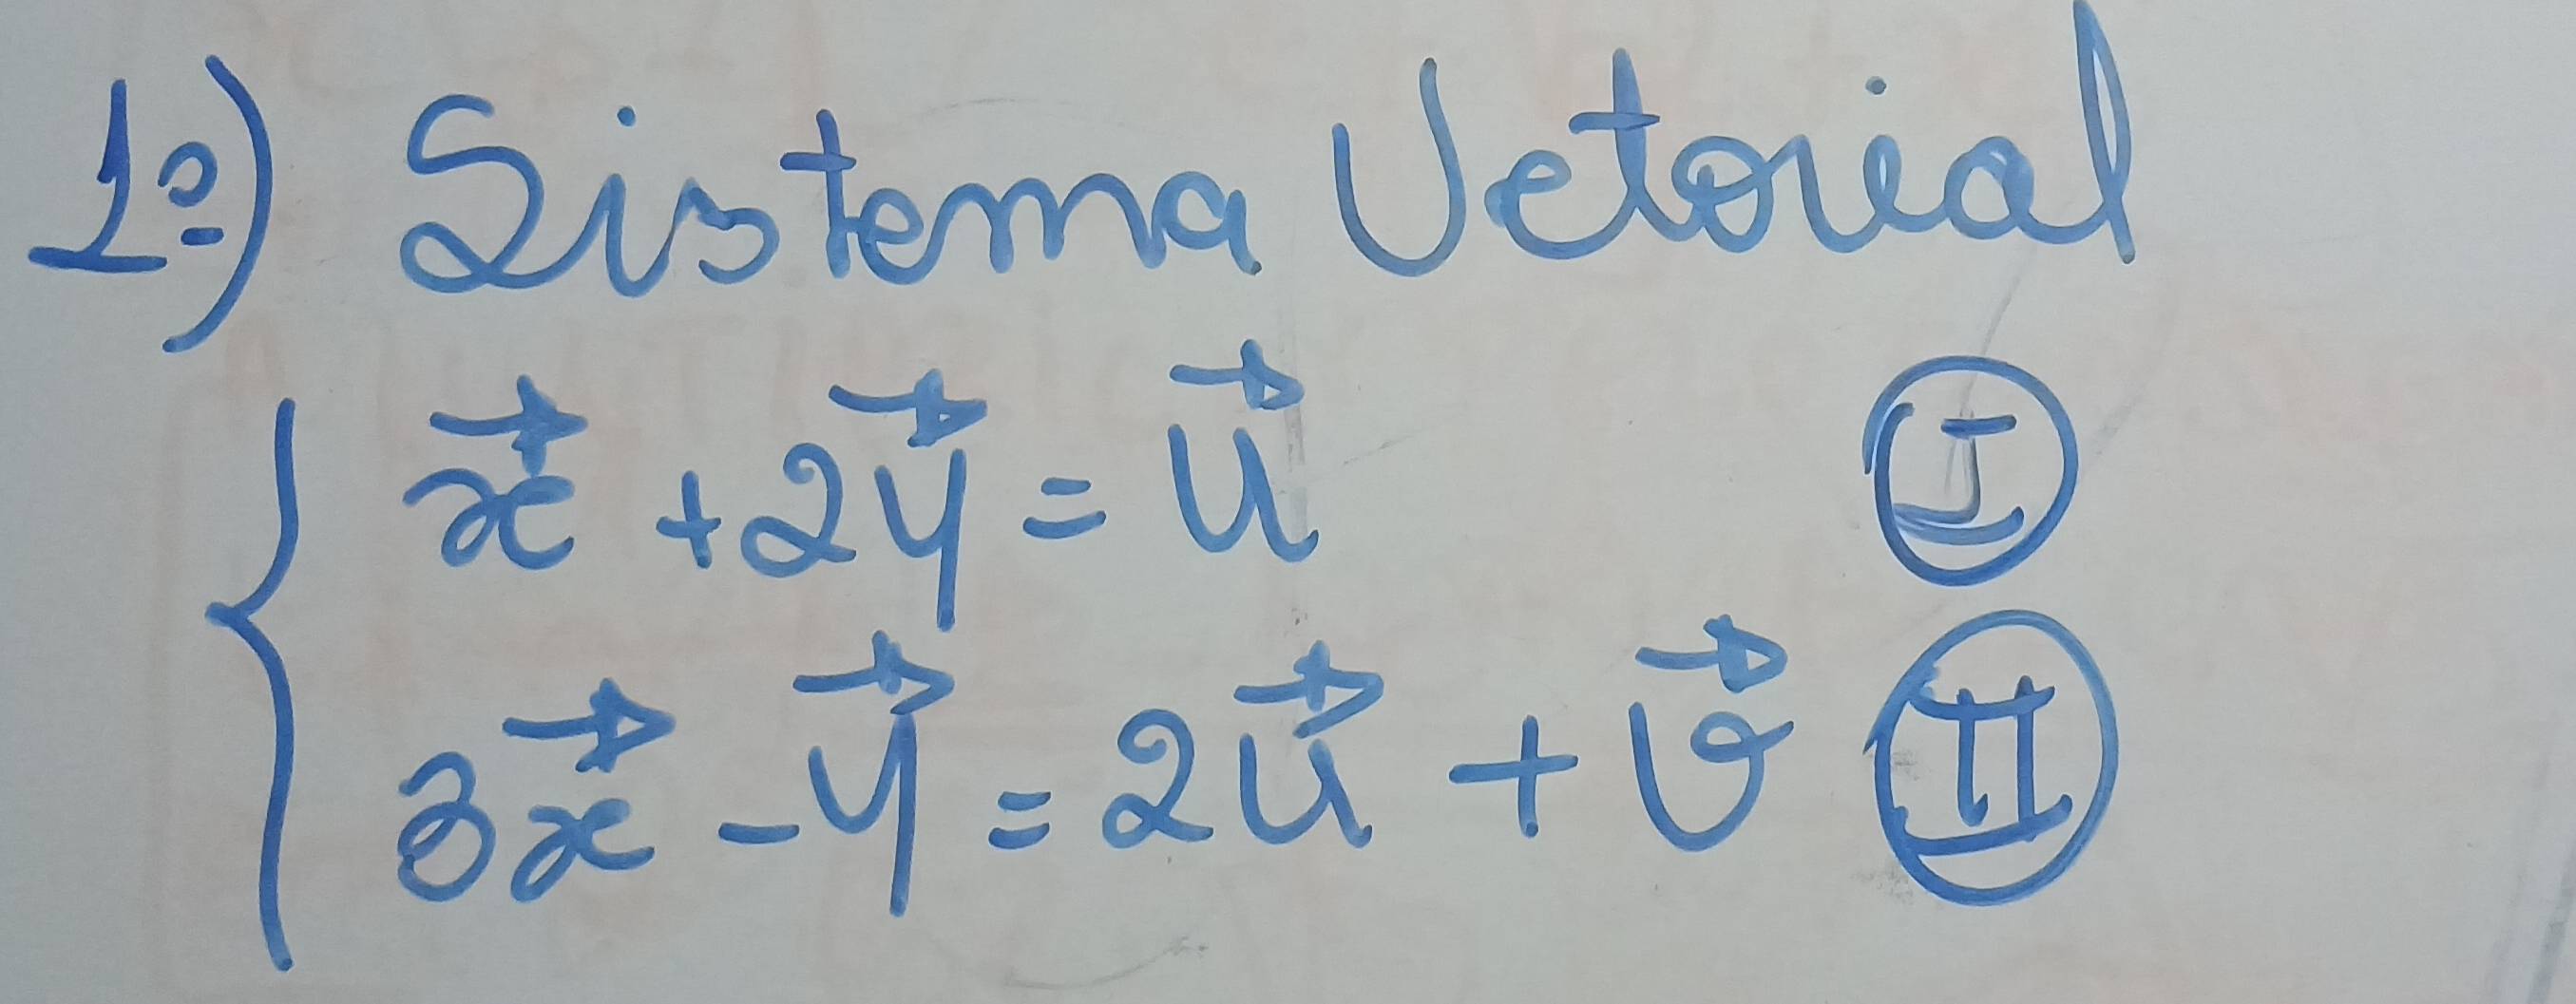 1º) Sistema Vetorial
x⃗ + 2y⃗ = u⃗ (I)
3x⃗ - y⃗ = 2u⃗ + v⃗ (II)